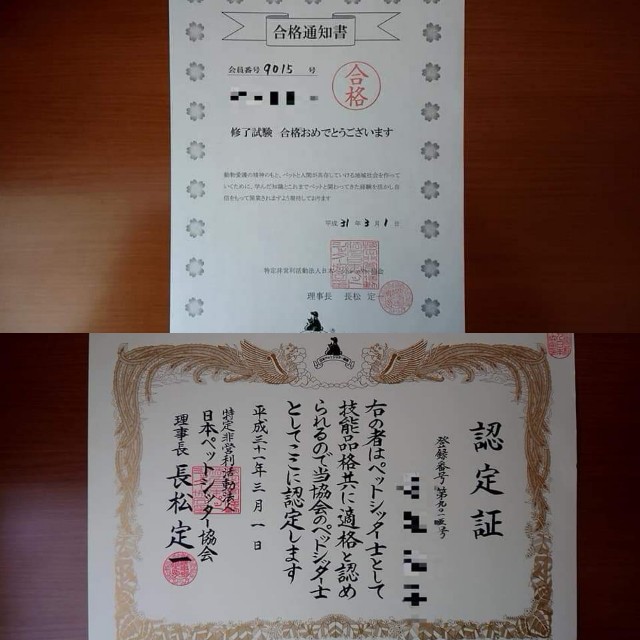 合格通知書
会員番号 9015 号
合格
修了試験 合格おめでとうございます
動物愛護の精神のもと、ペットと人間が共存していける地域社会を作っ
ていくために、学んだ知識とこれまでペットと関わってきた経験を活かし自
信をもって開業されますよう期待しております
平成 31 年 3 月 1 日
特定非営利活動法人日本ペットシッター協会
理事長 長松 定一
認定証
登録番号 第九〇一五号
右の者はペットシッター士として
技能品格共に適格と認め
られるので当協会のペットシッター士
としてここに認定します
平成三十一年三月一日
特定非営利活動法人
日本ペットシッター協会
理事長 長松定一